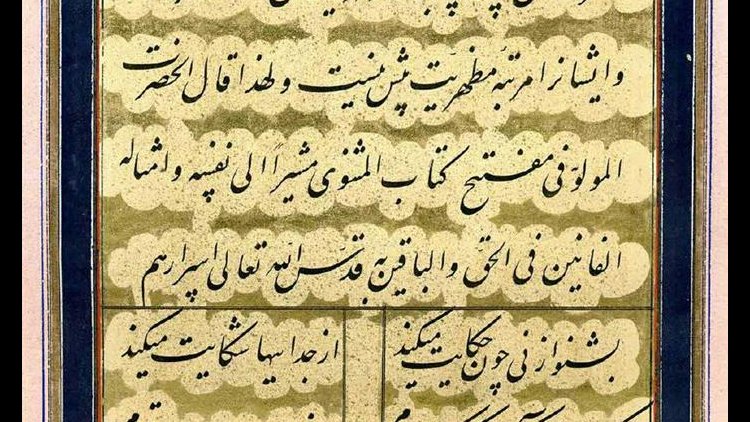 وایشانرا مرتبه مظهریت بیش نیست ولهذا قال الحضرت
المولوی فی مفتتح کتاب المثنوی مشیراً الی نفسه وامثاله
الفانین فی الحق والباقین به قدّس الله تعالی اسرارهم
بشنو از نی چون حکایت میکند از جداییها شکایت میکند